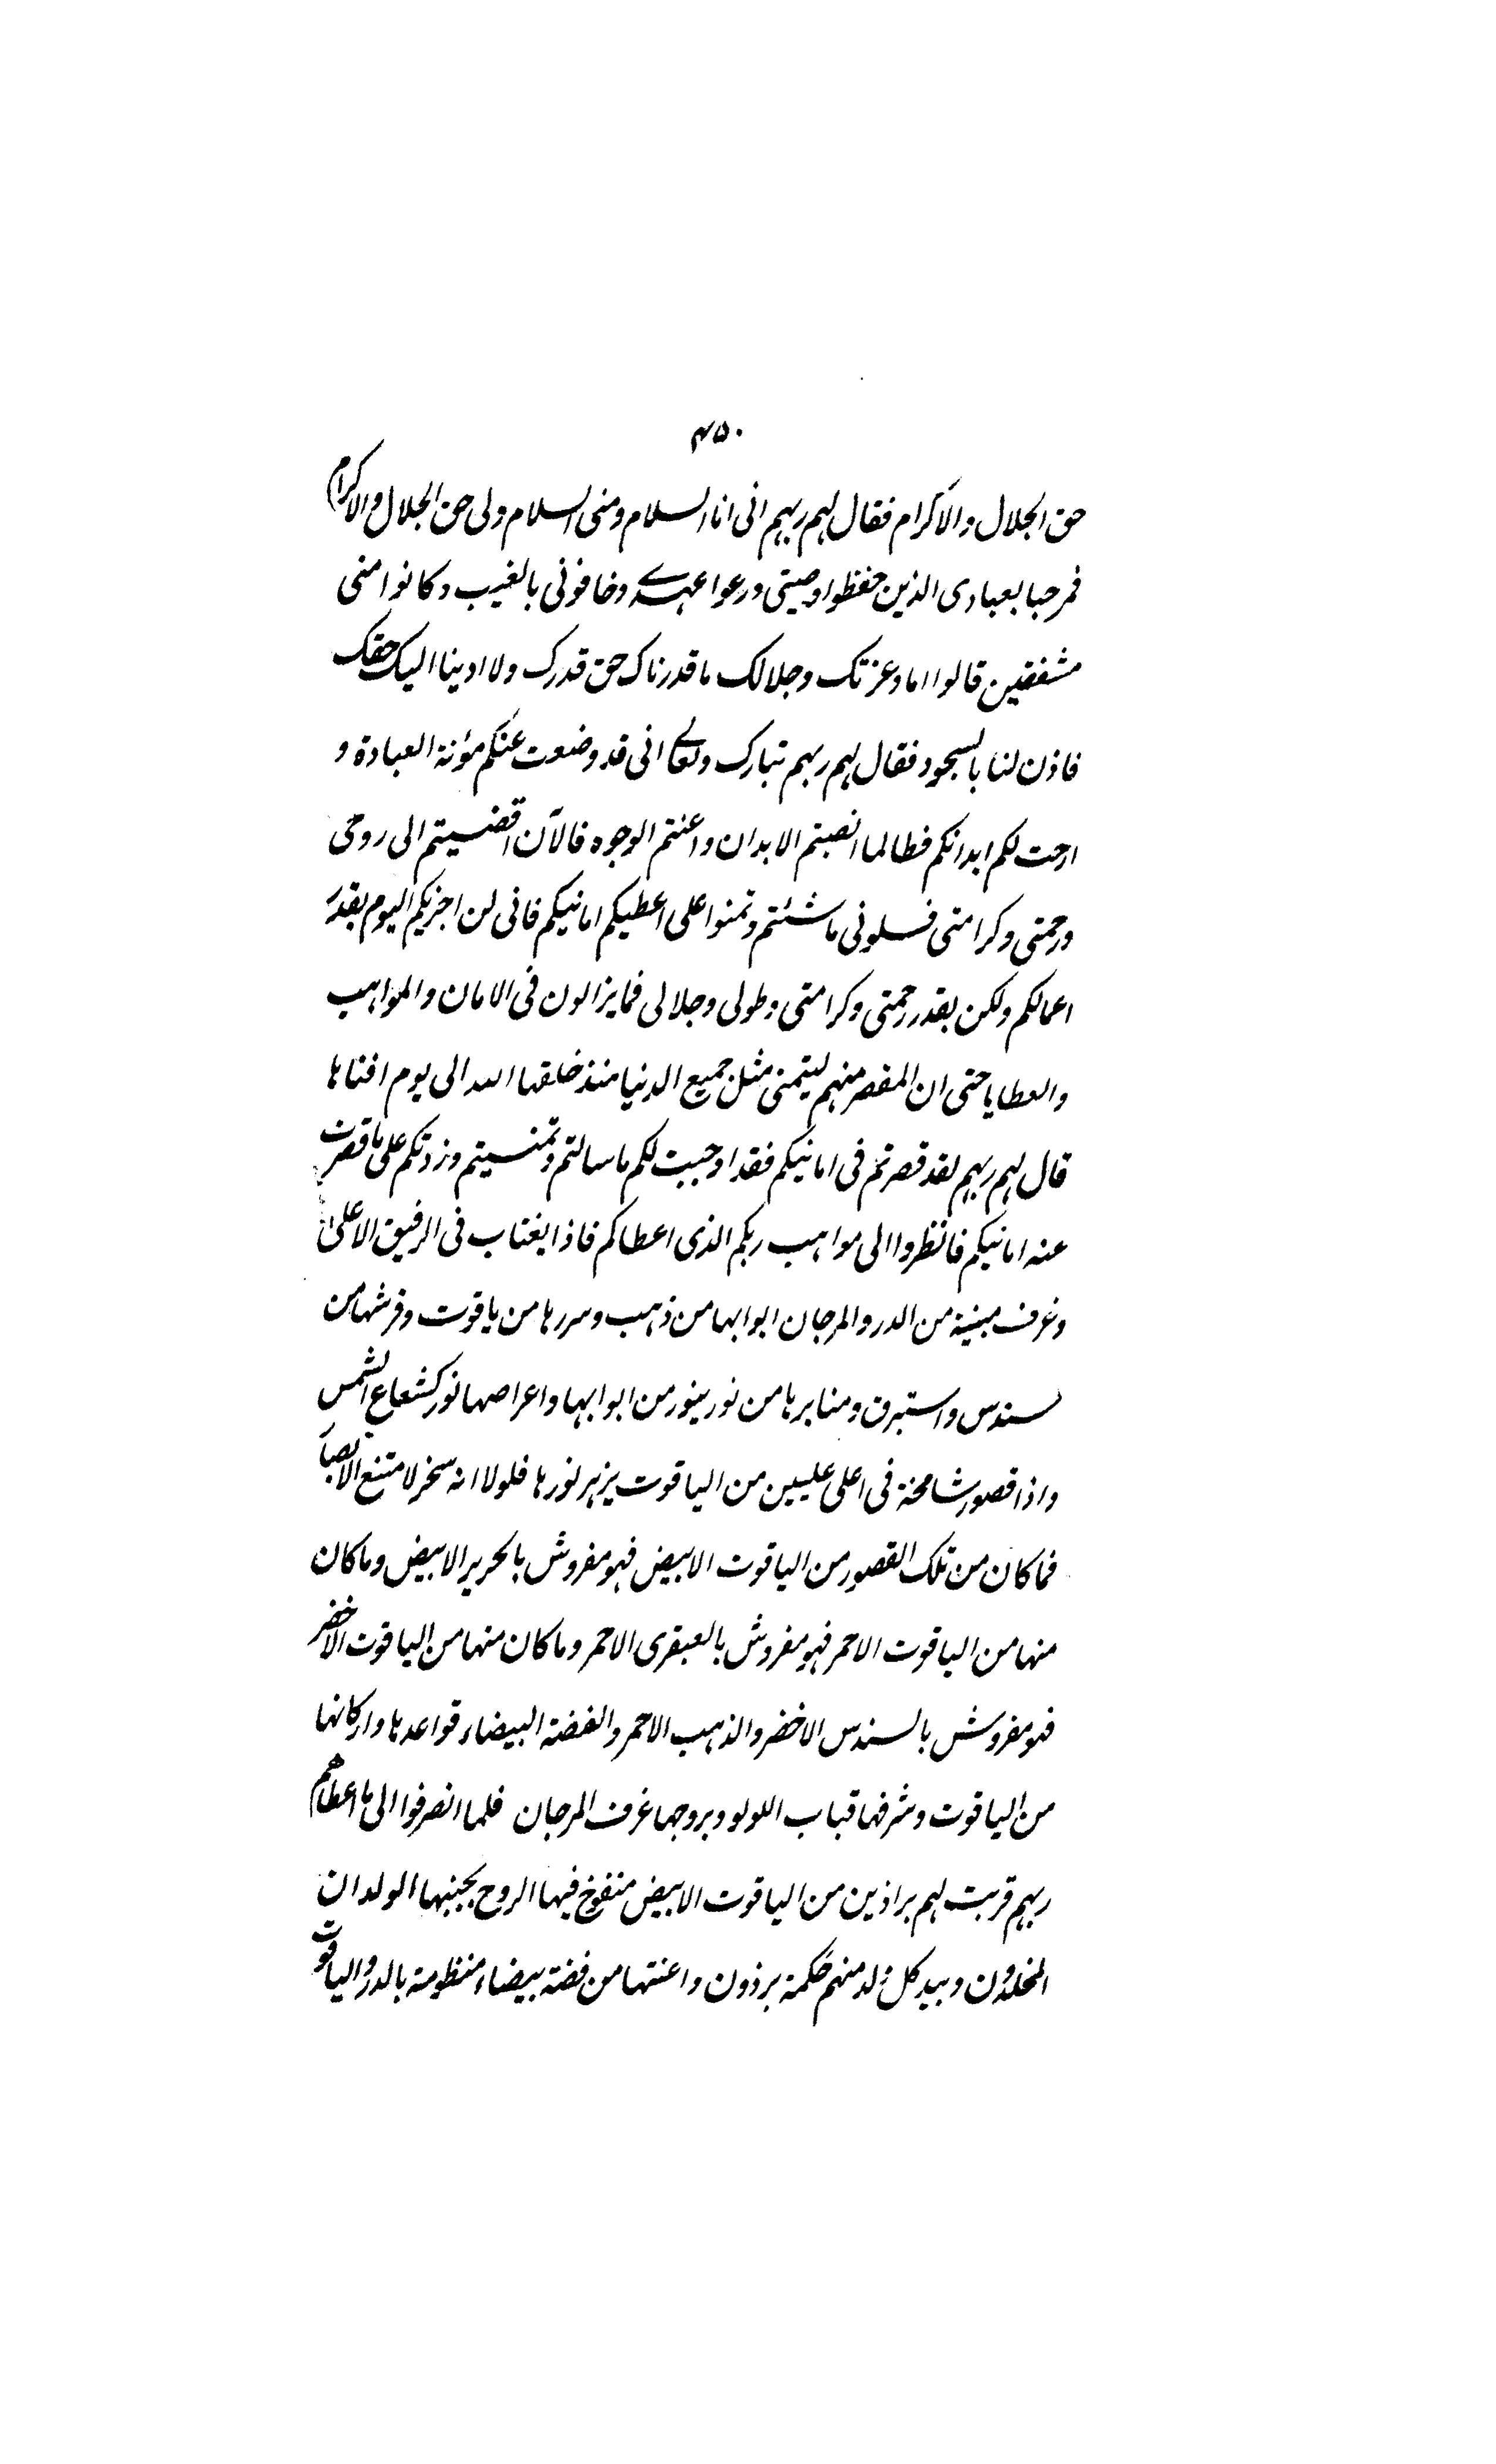 ۴۵۰
حق الجلال والاکرام فقال لہم ربہم انی انا السلام ومنی السلام ولی حق الجلال والاکرام
فمرحبا بعبادی الذین حفظوا وصیتی ورعوا عہدے وخافونی بالغیب وکانوا منی
مشفقین قالوا اما وعزتک وجلالک ما قدرناک حق قدرک ولا ادینا الیک حقک
فاذن لنا بالسجود فقال لہم ربہم تبارک وتعالی انی قد وضعت عنکم مؤنۃ العبادۃ و
ارحت لکم ابدانکم فطالما انصبتم الابدان واعنتم الوجوہ فالآن افضیتم الی روحی
ورحمتی وکرامتی فسلونی ما شئتم وتمنوا علی اعطیکم امانیکم فانی لن اجزیکم الیوم بقدر
اعمالکم ولکن بقدر رحمتی وکرامتی وطولی وجلالی فما یزالون فی الامان والمواہب
والعطایا حتی ان المقصر منہم لیتمنی مثل جمیع الدنیا منذ خلقہا اللہ الی یوم افناہا
قال لہم ربہم لقد قصرتم فی امانیکم فقد اوجبت لکم ما سالتم وتمنیتم وزدتکم علی ما قصرت
عنہ امانیکم فانظروا الی مواہب ربکم الذی اعطاکم فاذا بغتاب فی الرفیق الاعلیٰ
وغرف مبنیۃ من الدر والمرجان ابوابہا من ذہب وسررہا من یاقوت وفرشہا من
سندس واستبرق ومنابرہا من نور ینور من ابوابہا واعراصہا نور کشعاع الشمس
واذا قصور شامخۃ فی اعلی علیین من الیاقوت یزہر نورہا فلولا انہ سخر لامتنع الابصار
فما کان من تلک القصور من الیاقوت الابیض فہو مفروش بالحریر الابیض وما کان
منہا من الیاقوت الاحمر فہو مفروش بالعبقری الاحمر وما کان منہا من الیاقوت الاخضر
فہو مفروش بالسندس الاخضر والذہب الاحمر والفضۃ البیضاء قواعدہا وارکانہا
من الیاقوت وشرفہا قباب اللولو وبروجہا غرف المرجان فلما انصرفوا الی ما اعطاہم
ربہم قربت لہم براذین من الیاقوت الابیض منفوخ فیہا الروح بجنبہا الولدان
المخلدون وبید کل ولد منہم حکمۃ برذون واعنتہا من فضۃ بیضاء منظومۃ بالدر والیاقوت